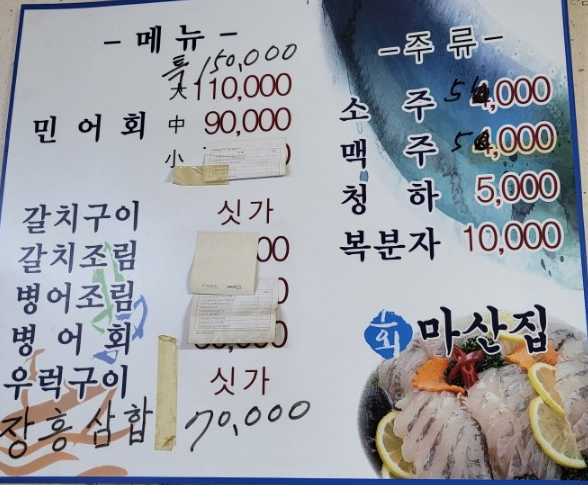 -메 뉴-
특 150,000
大 110,000
민 어 회 中 90,000
小
갈치구이 싯가
갈치조림 00
병어조림 0
병 어 회
우럭구이 싯가
장흥삼합 70,000
-주 류-
소 주 5,000
맥 주 5,000
청 하 5,000
복분자 10,000
회 마산집